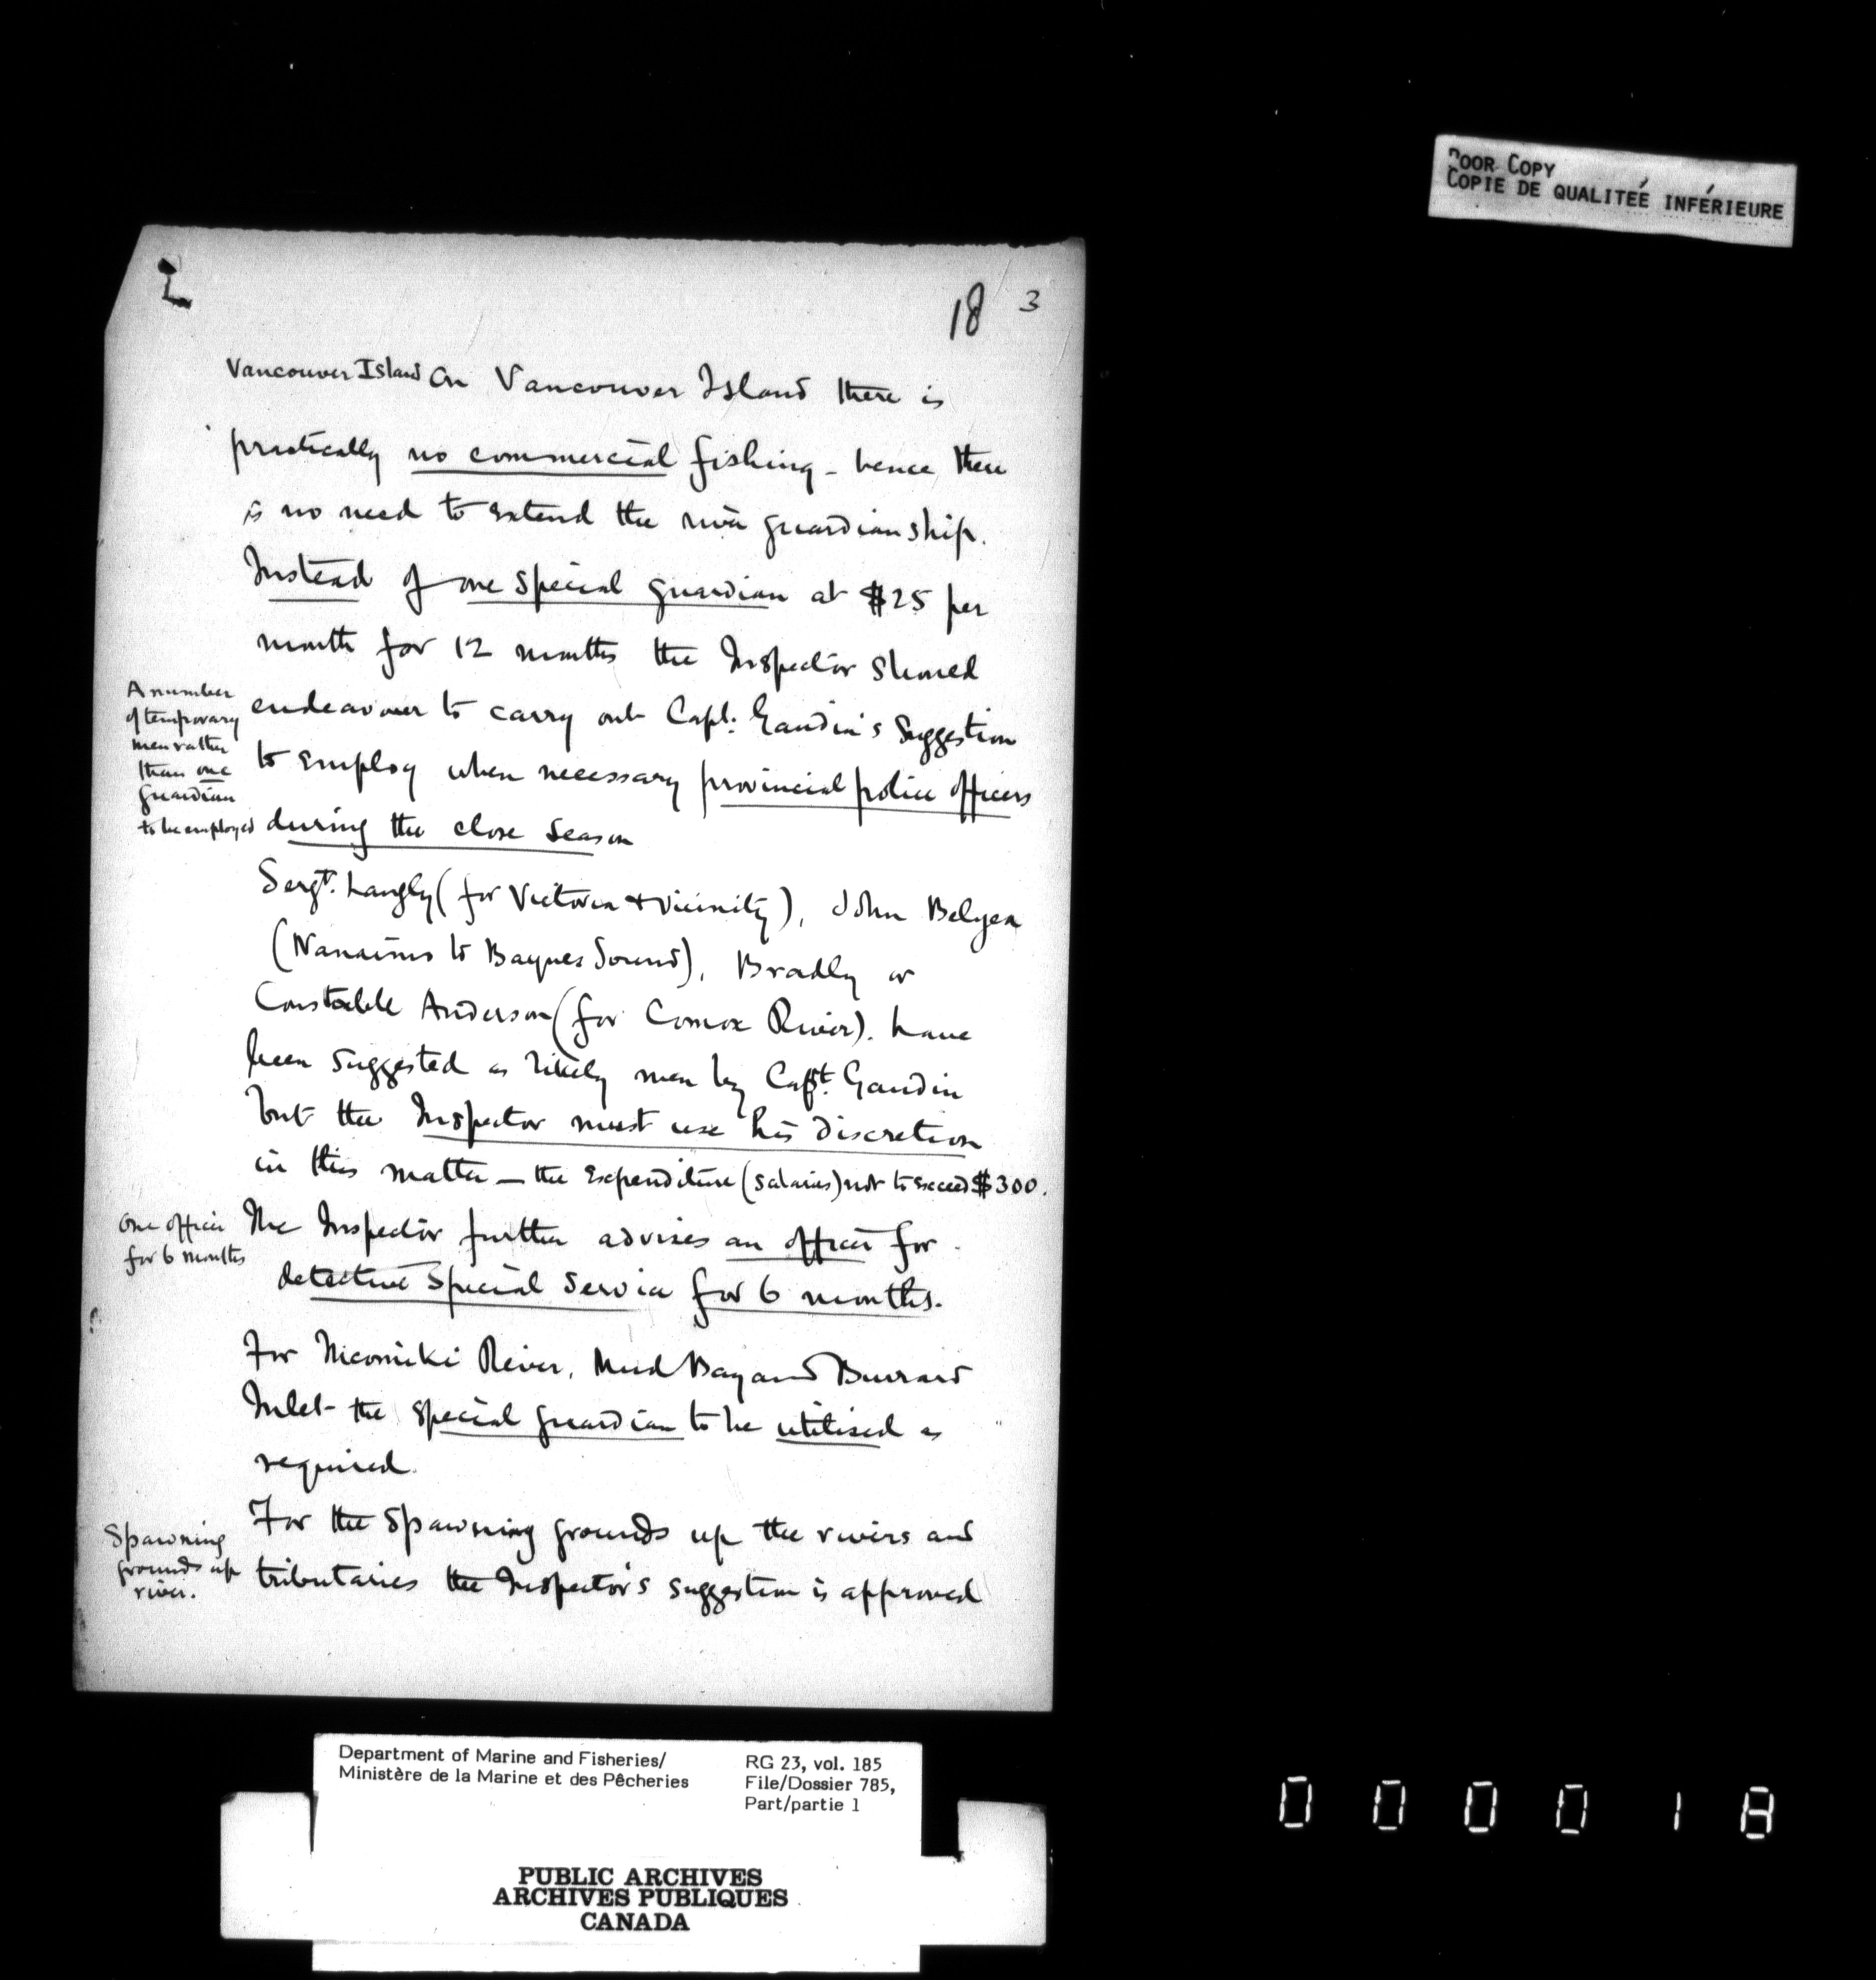 POOR COPY
COPIE DE QUALITEÉ INFÉRIEURE
18 3
Vancouver Island On Vancouver Island there is
practically no commercial fishing - hence there
is no need to extend the river guardianship.
Instead of one special guardian at $25 per
month for 12 months the Inspector should
A number
of temporary
men rather
than one
guardian
to be employed
endeavour to carry out Capt. Gaudin's suggestion
to employ when necessary provincial police officers
during the close season
Sergt. Langly (for Victoria & vicinity), John Belyea
(Nanaimo to Baynes Sound), Bradly or
Constable Anderson (for Comox River). have
been suggested as likely men by Capt. Gaudin
but the Inspector must use his discretion
in this matter — the expenditure (salaries) not to exceed $300.
One officer
for 6 months
The Inspector further advises an officer for
detective special service for 6 months.
For Nicomiki River, Mud Bay and Burrard
Inlet - the special guardian to be utilised as
required.
Spawning
grounds up
river.
For the spawning grounds up the rivers and
tributaries the Inspector's suggestion is approved
Department of Marine and Fisheries/
Ministère de la Marine et des Pêcheries
RG 23, vol. 185
File/Dossier 785,
Part/partie 1
PUBLIC ARCHIVES
ARCHIVES PUBLIQUES
CANADA
000018